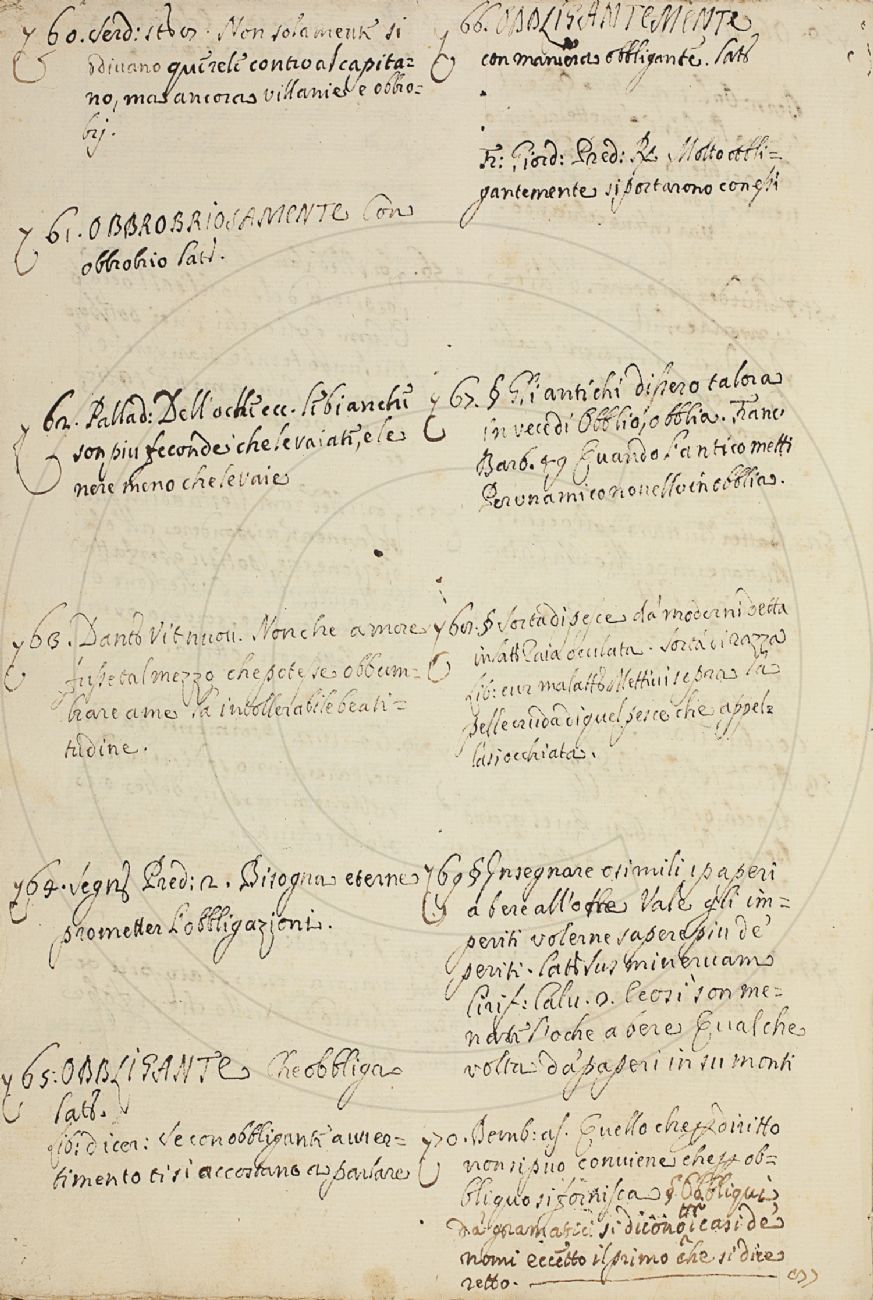 60. Serd: st: 7. Non solamente si
udivano querele contro al capita=
no, ma ancora villanie e obbro=
brj.
61. OBBROBRIOSAMENTE Con
obbrobrio lat:.
62. Pallad: Dell'oche ecc. le bianche
son piu feconde che le vaiate, e le
nere meno che le vaie
63. Dante Vit nuou. Non che amore
fusse tal mezzo che potesse obbum=
brare a me la intollerabile beati=
tudine.
64. Segn: Pred: 2. Bisogna eterne
prometter l'obbligazioni.
65. OBBLIGANTE Che obbliga
lat:.
lib: dicer: Se con obbligante auuer=
timento ti si accostano a parlare
66. OBBLIGANTEMENTE
con maniera obbligante. lat:
Fr: Giord: Pred: R Molto obbli=
gantemente si portarono con essi
67. § Gli antichi dissero talora
in vece di Obblio, obblia. Franc
Barb. 49 Quando l'antico metti
Per un amico nouello in obblia.
68. § Sorta di pesce da moderni detta
in lat: Raia oculata. Sorta di razza
lib: cur malatt: Mettiui sopra la
pelle cruda di quel pesce che appel=
lasi occhiata.
69 § Insegnare o simili i paperi
a bere all'oche Vale gli im=
periti volerne sapere piu de'
periti. lat: sus mineruam
Cirif: Calu. 2. Cosi son me=
nate l'oche a bere Qualche
volta da' paperi in su monti
70. Bemb: as. Quello che per diritto
non si puo conviene che per ob=
bliquo si fornisca § Obbliqui
da' gramatici si dicono i casi de'
altri
nomi eccetto il primo che si dice
retto.